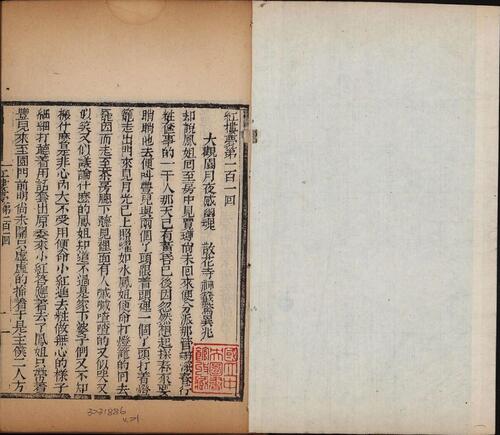 紅樓夢第一百一回
大觀園月夜感幽魂　散花寺神籤驚異兆
却說鳳姐回至房中見賈璉尚未回來便分派那管辦探春行
裝奩事的一干人那天已有黃昏已後因忽然想起探春來要
瞧瞧他去便叫豐兒與兩個丫頭跟着頭裡一個丫頭打着燈
籠走出門來見月光已上照耀如水鳳姐便命打燈籠的回去
罷因而走至茶房牕下聽見裡面有人嘁嘁喳喳的又似哭又
似笑又似議論什麼的鳳姐知道不過是家下婆子們又不知
搬什麼是非心內大不受用便命小紅進去粧做無心的樣子
細細打聽着用話套出原委來小紅答應着去了鳳姐只帶着
豐兒來至園門前門尚未關只虛虛的掩着于是主僕二人方
紅樓夢 第一百一回
一
國立中
央圖書
3231886
v.21